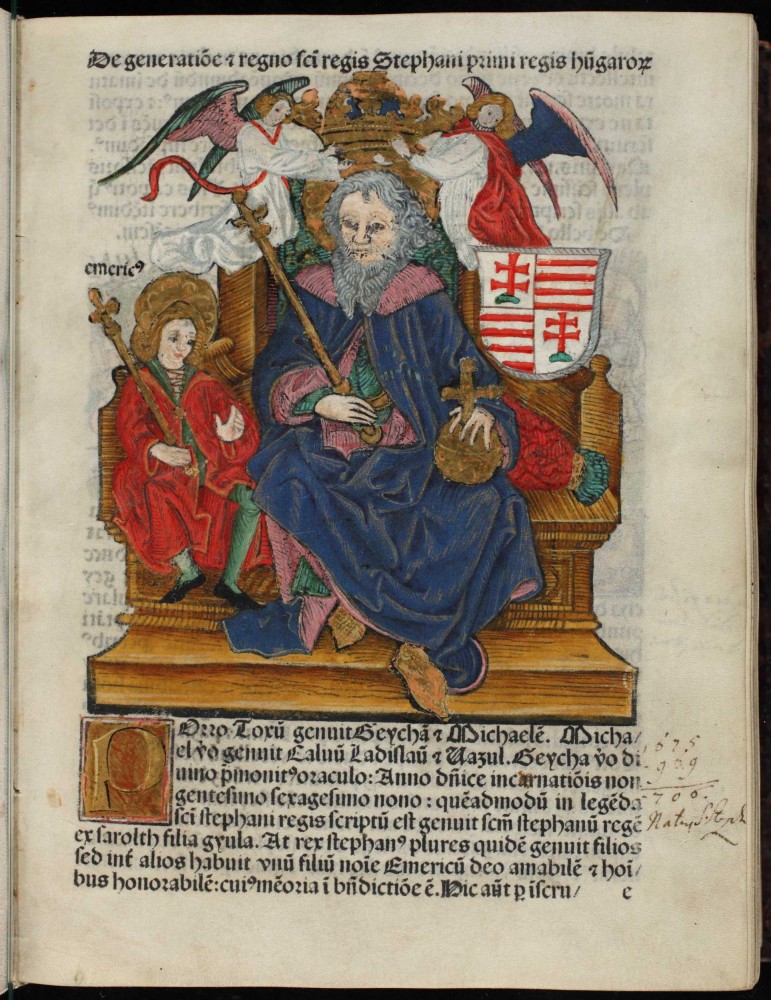 De generatiõe ⁊ regno scĩ regis Stephani primi regis hũgaroꝝ
emericꝰ
POrro Toxũ genuit Geychã ⁊ Michaelẽ. Micha/
el v̾o genuit Caluũ Ladislaũ ⁊ Uazul. Geycha v̾o di
uino p̃monitꝰ oraculo: Anno dñice incarnatiõis non
gentesimo sexagesimo nono: quẽadmodũ in legẽda
scĩ stephani regis scriptũ est genuit scm̃ stephanũ regẽ
ex sarolth filia gyula. At rex stephanꝰ plures quidẽ genuit filios
sed int̃ alios habuit vnũ filiũ noĩe Emericũ deo amabilẽ ⁊ hoĩ/
bus honorabilẽ: cuiꝰ mẽoria ĩ bñdictiõe ẽ. Hic aũt ꝑ ĩscru/ e
969
Natus S. Steph